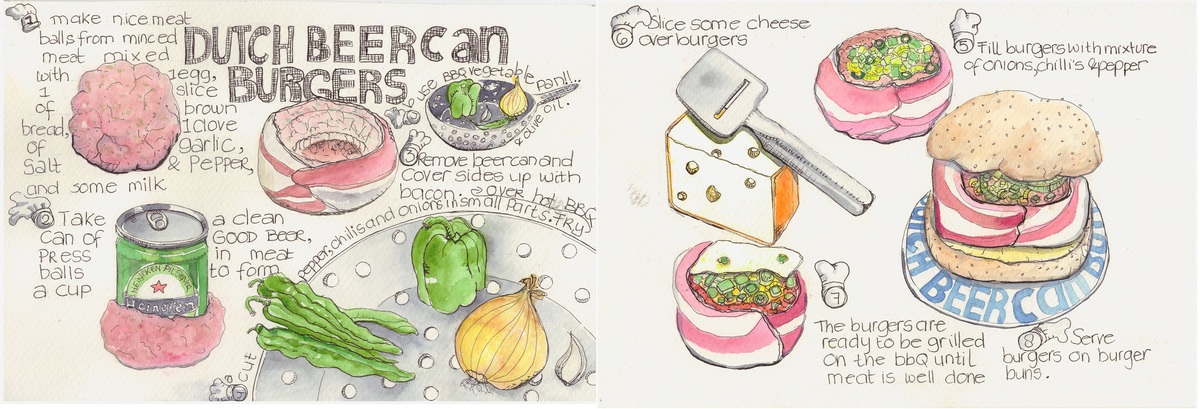 DUTCH BEERCan
BURGERS
1 make nice meat
balls from minced
meat mixed
with 1egg,
1 slice
of brown
bread, 1clove
of garlic,
Salt & Pepper,
and some milk
2 Take a clean
can of GOOD BEER,
PRESS in meat
balls to form
a cup
HEINEKEN PILSENER
Heineken
Remove beercan and
cover sides up with
bacon.
Cut pepper, chilis and onions in small parts. FRY
over hot BBQ
use BBQ vegetable pan!!...
& olive oil.
5 Fill burgers with mixture
of onions, chilli's & pepper
6 Slice some cheese
over burgers
7
The burgers are
ready to be grilled
on the bbQ until
meat is well done
8 Serve
burgers on burger
buns.
BEERCan